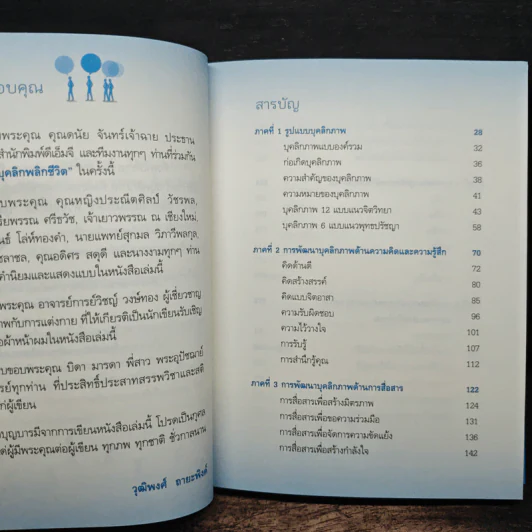 อบคุณ
พระคุณ คุณดนัย จันทร์เจ้าฉาย ประธาน
สำนักพิมพ์ดีเอ็มจี และทีมงานทุกๆ ท่านที่ร่วมกัน
บุคลิกพลิกชีวิต" ในครั้งนี้
บพระคุณ คุณหญิงประณีตศิลป์ วัชรพล,
ศรีธวัช, เจ้าเยาวพรรณ ณ เชียงใหม่,
โล่ห์ทองคำ, นายแพทย์สุกมล วิภาวีพลกุล,
คุณอดิศร สดุดี และนางงามทุกๆ ท่าน
คำนิยมและแสดงแบบในหนังสือเล่มนี้
พระคุณ อาจารย์การย์วิชญ์ วงษ์ทอง ผู้เชี่ยวชาญ
าพกับการแต่งกาย ที่ให้เกียรติเป็นนักเขียนรับเชิญ
ผ้าหน้าผมในหนังสือเล่มนี้
บขอบพระคุณ บิดา มารดา พี่สาว พระอุปัชฌาย์
รย์ทุกท่าน ที่ประสิทธิ์ประสาทสรรพวิชาและสติ
ก่ผู้เขียน
บุญบารมีจากการเขียนหนังสือเล่มนี้ โปรดเป็นกุศล
ต่ผู้มีพระคุณต่อผู้เขียน ทุกภพ ทุกชาติ ชั่วกาลนาน
วุฒิพงศ์ ถายะพิงค์
สารบัญ
ภาคที่ 1 รูปแบบบุคลิกภาพ 28
บุคลิกภาพแบบองค์รวม 32
ก่อเกิดบุคลิกภาพ 36
ความสำคัญของบุคลิกภาพ 38
ความหมายของบุคลิกภาพ 41
บุคลิกภาพ 12 แบบแนวจิตวิทยา 43
บุคลิกภาพ 6 แบบแนวพุทธปรัชญา 58
ภาคที่ 2 การพัฒนาบุคลิกภาพด้านความคิดและความรู้สึก 70
คิดด้านดี 72
คิดสร้างสรรค์ 80
คิดแบบจิตอาสา 85
ความรับผิดชอบ 96
ความไว้วางใจ 101
การรับรู้ 107
การสำนึกรู้คุณ 112
ภาคที่ 3 การพัฒนาบุคลิกภาพด้านการสื่อสาร 122
การสื่อสารเพื่อสร้างมิตรภาพ 124
การสื่อสารเพื่อขอความร่วมมือ 131
การสื่อสารเพื่อจัดการความขัดแย้ง 136
การสื่อสารเพื่อสร้างกำลังใจ 142